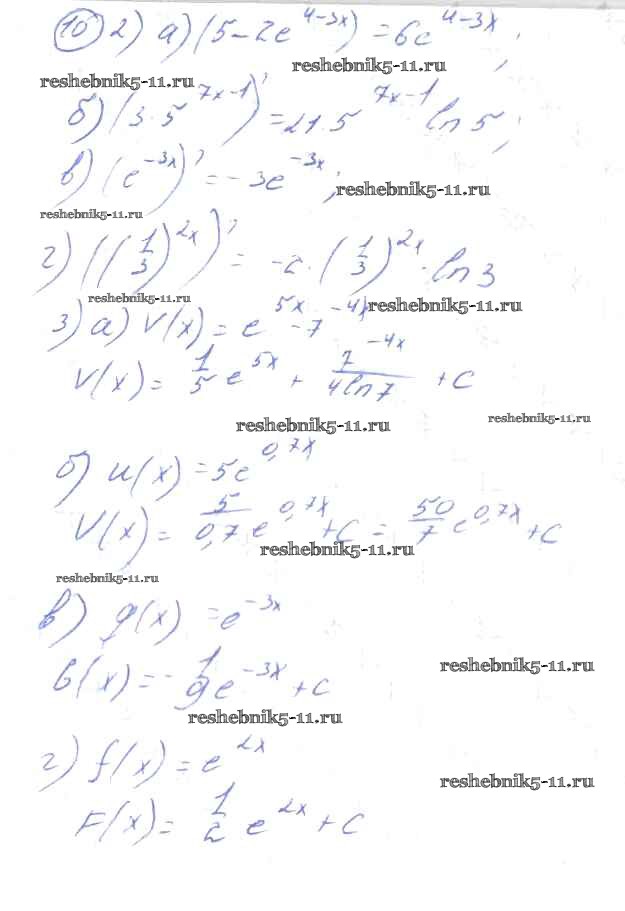 (10) 2) а) (5-2e^{4-3x}) = 6e^{4-3x};
reshebnik5-11.ru
reshebnik5-11.ru
б) (3·5^{7x-1})' = 21·5^{7x-1} ln 5;
в) (e^{-3x})' = -3e^{-3x};
reshebnik5-11.ru
reshebnik5-11.ru
г) ((1/3)^{2x})' = -2·(1/3)^{2x}·ln 3
reshebnik5-11.ru
reshebnik5-11.ru
3) а) V(x) = e^{5x} - 7^{-4x}
V(x) = 1/5 e^{5x} + 7^{-4x}/(4 ln 7) + C
reshebnik5-11.ru
reshebnik5-11.ru
б) u(x) = 5e^{0,7x}
V(x) = 5/0,7 e^{0,7x} + C = 50/7 e^{0,7x} + C
reshebnik5-11.ru
reshebnik5-11.ru
в) g(x) = e^{-3x}
G(x) = -1/9 e^{-3x} + C
reshebnik5-11.ru
reshebnik5-11.ru
г) f(x) = e^{2x}
reshebnik5-11.ru
F(x) = 1/2 e^{2x} + C